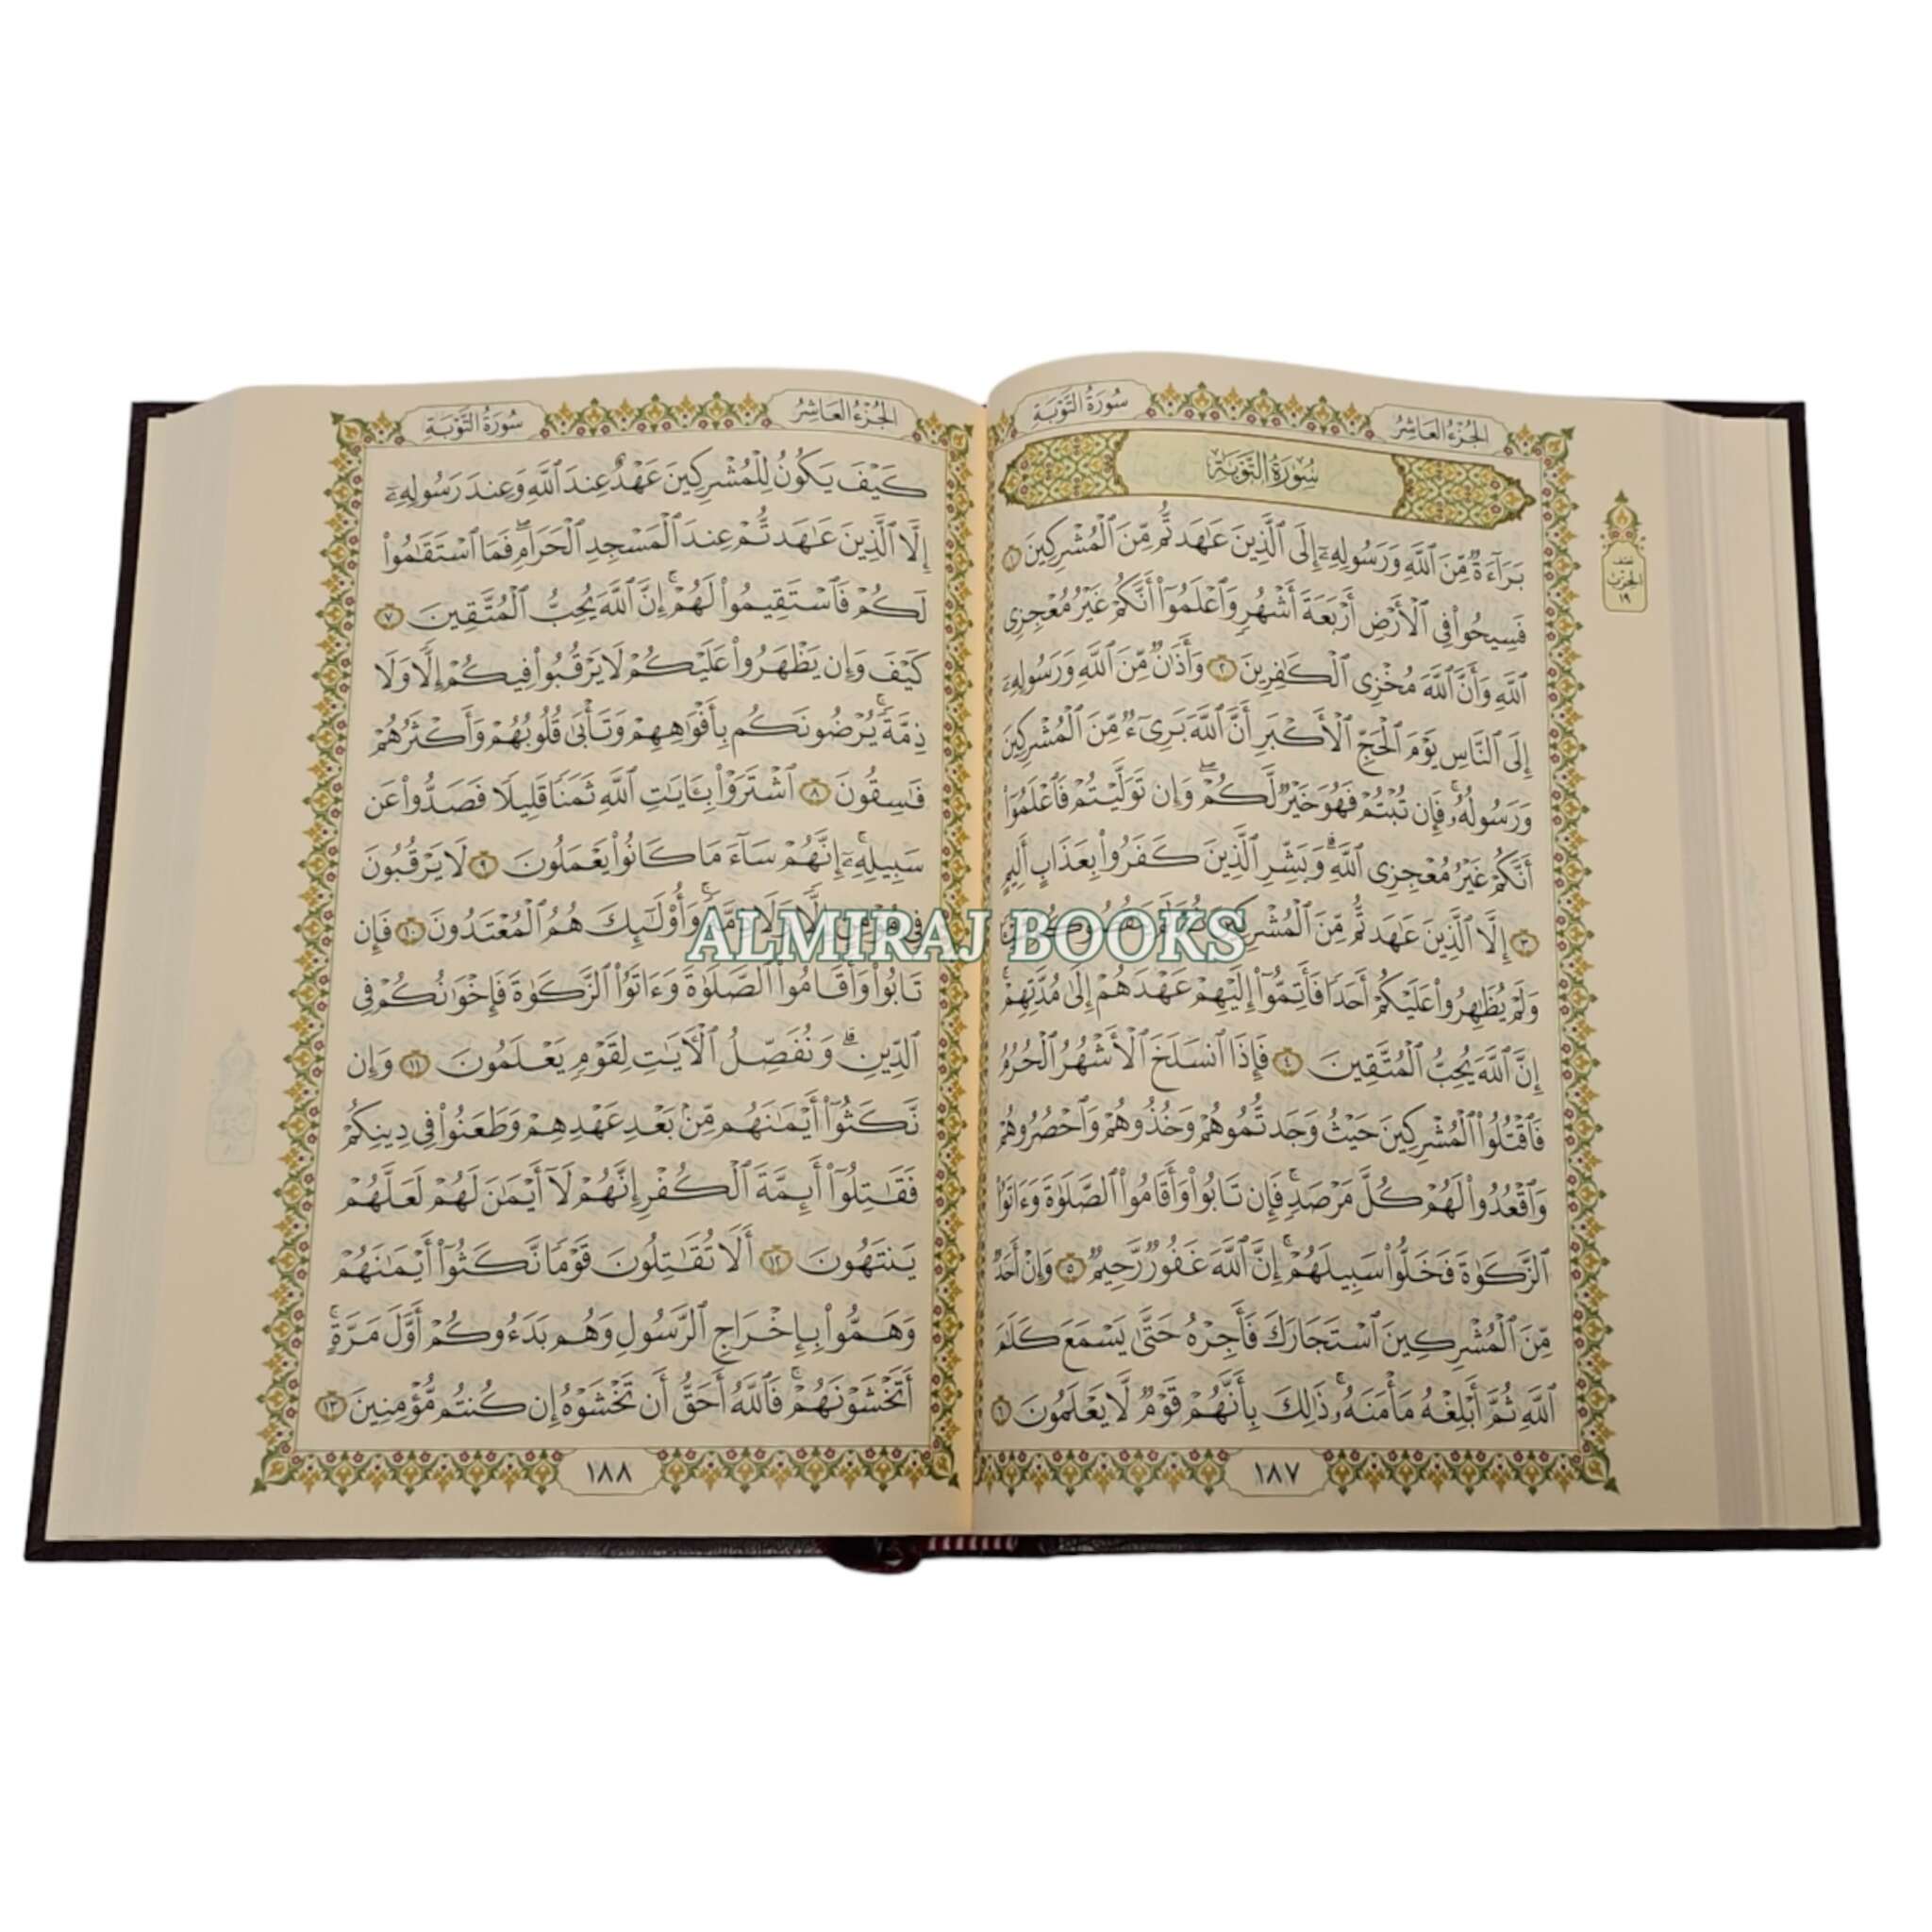 الجُزْءُ العَاشِرُ
سُورَةُ التَّوْبَةِ
سُورَةُ التَّوْبَةِ
نصف
الحزب
١٩
بَرَآءَةٌ مِّنَ ٱللَّهِ وَرَسُولِهِۦٓ إِلَى ٱلَّذِينَ عَٰهَدتُّم مِّنَ ٱلْمُشْرِكِينَ ١
فَسِيحُوا۟ فِى ٱلْأَرْضِ أَرْبَعَةَ أَشْهُرٍ وَٱعْلَمُوٓا۟ أَنَّكُمْ غَيْرُ مُعْجِزِى
ٱللَّهِ وَأَنَّ ٱللَّهَ مُخْزِى ٱلْكَٰفِرِينَ ٢ وَأَذَٰنٌ مِّنَ ٱللَّهِ وَرَسُولِهِۦٓ
إِلَى ٱلنَّاسِ يَوْمَ ٱلْحَجِّ ٱلْأَكْبَرِ أَنَّ ٱللَّهَ بَرِىٓءٌ مِّنَ ٱلْمُشْرِكِينَ
وَرَسُولُهُۥ ۚ فَإِن تُبْتُمْ فَهُوَ خَيْرٌ لَّكُمْ ۖ وَإِن تَوَلَّيْتُمْ فَٱعْلَمُوٓا۟
أَنَّكُمْ غَيْرُ مُعْجِزِى ٱللَّهِ ۗ وَبَشِّرِ ٱلَّذِينَ كَفَرُوا۟ بِعَذَابٍ أَلِيمٍ
٣ إِلَّا ٱلَّذِينَ عَٰهَدتُّم مِّنَ
وَلَمْ يُظَٰهِرُوا۟ عَلَيْكُمْ أَحَدًا فَأَتِمُّوٓا۟ إِلَيْهِمْ عَهْدَهُمْ إِلَىٰ مُدَّتِهِمْ ۚ
إِنَّ ٱللَّهَ يُحِبُّ ٱلْمُتَّقِينَ ٤ فَإِذَا ٱنسَلَخَ ٱلْأَشْهُرُ ٱلْحُرُمُ
فَٱقْتُلُوا۟ ٱلْمُشْرِكِينَ حَيْثُ وَجَدتُّمُوهُمْ وَخُذُوهُمْ وَٱحْصُرُوهُمْ
وَٱقْعُدُوا۟ لَهُمْ كُلَّ مَرْصَدٍ ۚ فَإِن تَابُوا۟ وَأَقَامُوا۟ ٱلصَّلَوٰةَ وَءَاتَوُا۟
ٱلزَّكَوٰةَ فَخَلُّوا۟ سَبِيلَهُمْ ۚ إِنَّ ٱللَّهَ غَفُورٌ رَّحِيمٌ ٥ وَإِنْ أَحَدٌ
مِّنَ ٱلْمُشْرِكِينَ ٱسْتَجَارَكَ فَأَجِرْهُ حَتَّىٰ يَسْمَعَ كَلَٰمَ
ٱللَّهِ ثُمَّ أَبْلِغْهُ مَأْمَنَهُۥ ۚ ذَٰلِكَ بِأَنَّهُمْ قَوْمٌ لَّا يَعْلَمُونَ ٦
١٨٧
الجُزْءُ العَاشِرُ
سُورَةُ التَّوْبَةِ
كَيْفَ يَكُونُ لِلْمُشْرِكِينَ عَهْدٌ عِندَ ٱللَّهِ وَعِندَ رَسُولِهِۦٓ
إِلَّا ٱلَّذِينَ عَٰهَدتُّمْ عِندَ ٱلْمَسْجِدِ ٱلْحَرَامِ ۖ فَمَا ٱسْتَقَٰمُوا۟
لَكُمْ فَٱسْتَقِيمُوا۟ لَهُمْ ۚ إِنَّ ٱللَّهَ يُحِبُّ ٱلْمُتَّقِينَ ٧
كَيْفَ وَإِن يَظْهَرُوا۟ عَلَيْكُمْ لَا يَرْقُبُوا۟ فِيكُمْ إِلًّا وَلَا
ذِمَّةً ۚ يُرْضُونَكُم بِأَفْوَٰهِهِمْ وَتَأْبَىٰ قُلُوبُهُمْ وَأَكْثَرُهُمْ
فَٰسِقُونَ ٨ ٱشْتَرَوْا۟ بِـَٔايَٰتِ ٱللَّهِ ثَمَنًا قَلِيلًا فَصَدُّوا۟ عَن
سَبِيلِهِۦٓ ۚ إِنَّهُمْ سَآءَ مَا كَانُوا۟ يَعْمَلُونَ ٩ لَا يَرْقُبُونَ
فِى مُؤْمِنٍ إِلًّا وَلَا ذِمَّةً ۚ وَأُو۟لَٰٓئِكَ هُمُ ٱلْمُعْتَدُونَ ١٠ فَإِن
تَابُوا۟ وَأَقَامُوا۟ ٱلصَّلَوٰةَ وَءَاتَوُا۟ ٱلزَّكَوٰةَ فَإِخْوَٰنُكُمْ فِى
ٱلدِّينِ ۗ وَنُفَصِّلُ ٱلْـَٔايَٰتِ لِقَوْمٍ يَعْلَمُونَ ١١ وَإِن
نَّكَثُوٓا۟ أَيْمَٰنَهُم مِّنۢ بَعْدِ عَهْدِهِمْ وَطَعَنُوا۟ فِى دِينِكُمْ
فَقَٰتِلُوٓا۟ أَئِمَّةَ ٱلْكُفْرِ ۙ إِنَّهُمْ لَآ أَيْمَٰنَ لَهُمْ لَعَلَّهُمْ
يَنتَهُونَ ١٢ أَلَا تُقَٰتِلُونَ قَوْمًا نَّكَثُوٓا۟ أَيْمَٰنَهُمْ
وَهَمُّوا۟ بِإِخْرَاجِ ٱلرَّسُولِ وَهُم بَدَءُوكُمْ أَوَّلَ مَرَّةٍ ۚ
أَتَخْشَوْنَهُمْ ۚ فَٱللَّهُ أَحَقُّ أَن تَخْشَوْهُ إِن كُنتُم مُّؤْمِنِينَ ١٣
١٨٨
ALMIRAJ BOOKS